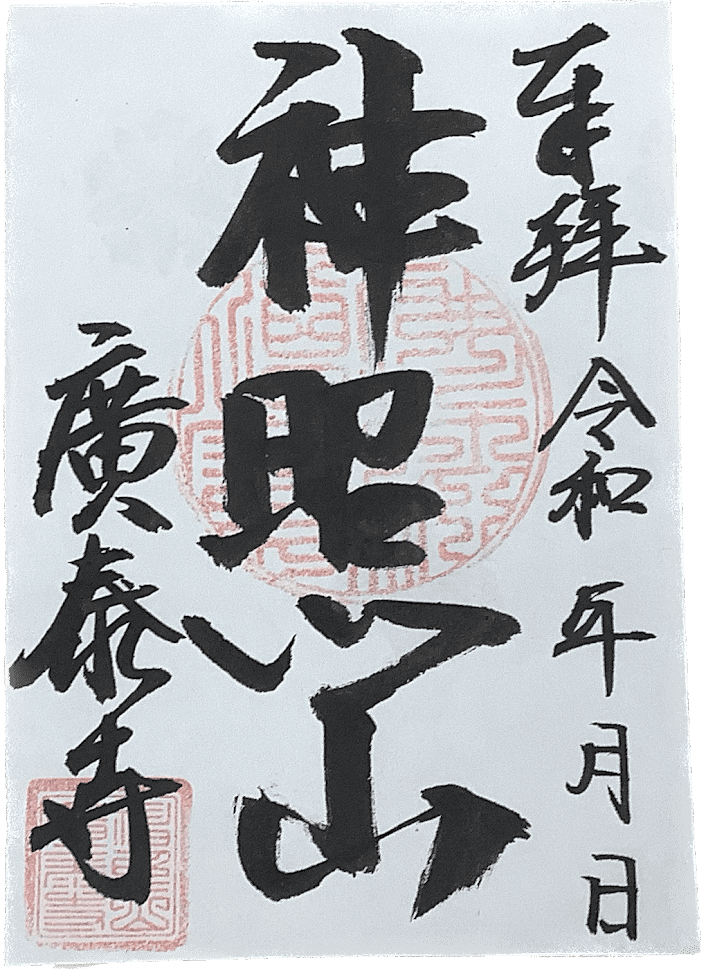 奉拝 令和 年 月 日
神照山
廣泰寺